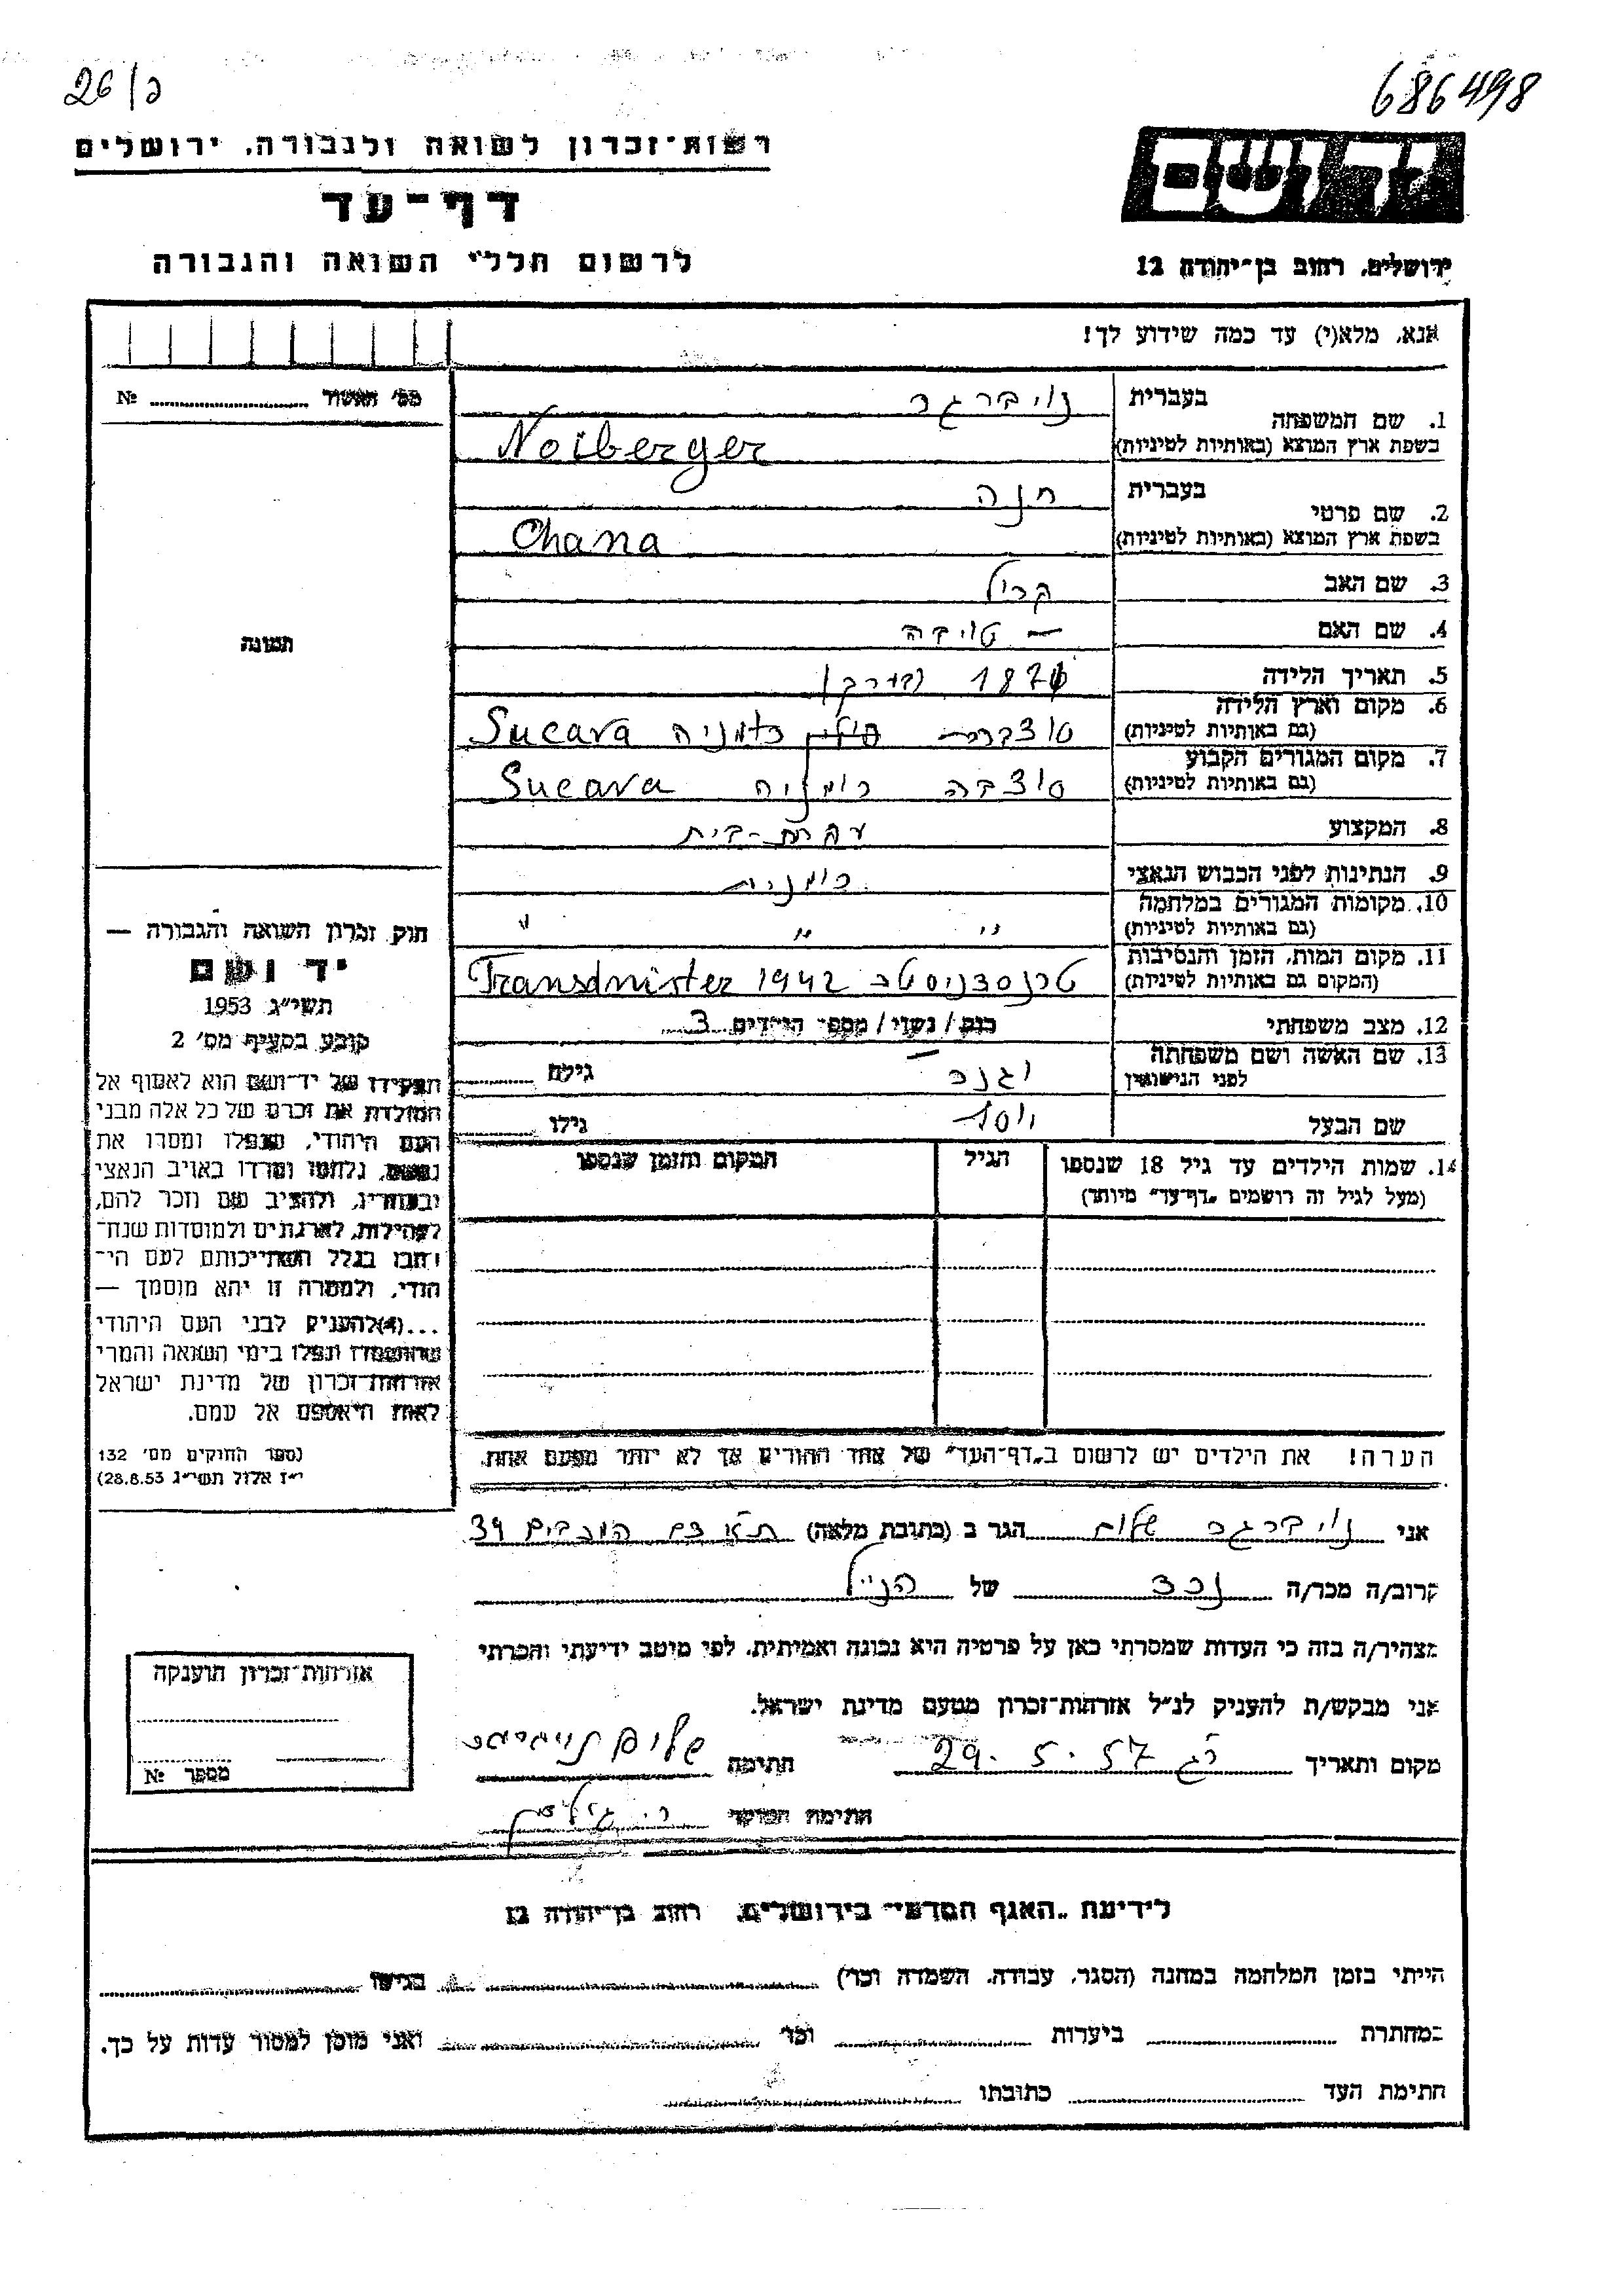 26/כ
686498
רשות־זכרון לשואה ולגבורה, ירושלים
דף־עד
לרשום חללי השואה והגבורה
יד ושם
ירושלים, רחוב בן־יהודה 12
אנא, מלא(י) עד כמה שידוע לך!
מס' האשור № 
1. שם המשפחה בעברית נויברגר
בשפת ארץ המוצא (באותיות לטיניות) Noiberger
2. שם פרטי בעברית חנה
בשפת ארץ המוצא (באותיות לטיניות) Chana
3. שם האב
4. שם האם
5. תאריך הלידה 187
6. מקום וארץ הלידה (גם באותיות לטיניות) רומניה Sucava
7. מקום המגורים הקבוע (גם באותיות לטיניות) סוצבה רומניה Sucava
8. המקצוע עקרת-בית
9. הנתינות לפני הכבוש הנאצי רומנית
10. מקומות המגורים במלחמה (גם באותיות לטיניות) " " "
11. מקום המות, הזמן והנסיבות (המקום גם באותיות לטיניות) טרנסדניסטר Transdnister 1942
12. מצב משפחתי רוק / נשוי / מספר הילדים 3
13. שם האשה ושם משפחתה לפני הנישואין וגנר גילה
שם הבעל גילו
14. שמות הילדים עד גיל 18 שנספו
(מעל לגיל זה רושמים „דף־עד” מיוחד)
הגיל
המקום והזמן שנספו
הערה! את הילדים יש לרשום ב„דף־העד” של אחד ההורים אך לא יותר מפעם אחת.
תמונה
חוק זכרון השואה והגבורה —
יד ושם
תשי״ג 1953
קובע בסעיף מס' 2
תפקידו של יד־ושם הוא לאסוף אל
המולדת את זכרם של כל אלה מבני
העם היהודי, שנפלו ומסרו את
נפשם, נלחמו ומרדו באויב הנאצי
ובעוזריו, ולהציב שם וזכר להם,
לקהילות, לארגונים ולמוסדות שנח־
רבו בגלל השתייכותם לעם הי־
הודי, ולמטרה זו יהא מוסמך —
...(4) להעניק לבני העם היהודי
שהושמדו ונפלו בימי השואה והמרי
אזרחות־זכרון של מדינת ישראל
לאות היאספם אל עמם.
(ספר החוקים מס' 132
י״ז אלול תשי״ג 28.8.53)
אני נויברגר שלום הגר ב (כתובת מלאה) 39
קרוב/ה מכר/ה נכד של הנ״ל
מצהיר/ה בזה כי העדות שמסרתי כאן על פרטיה היא נכונה ואמיתית, לפי מיטב ידיעתי והכרתי
אני מבקש/ת להעניק לנ״ל אזרחות־זכרון מטעם מדינת ישראל.
מקום ותאריך רג 29.5.57 חתימה
חתימת הפוקד
אזרחות־זכרון הוענקה
מספר №
לידיעת „האגף המדעי” בירושלים, רחוב בן־יהודה 12
הייתי בזמן המלחמה במחנה (הסגר, עבודה, השמדה וכו') בגיטו
במחתרת ביערות וכו' ואני מוכן למסור עדות על כך.
חתימת העד כתובתו